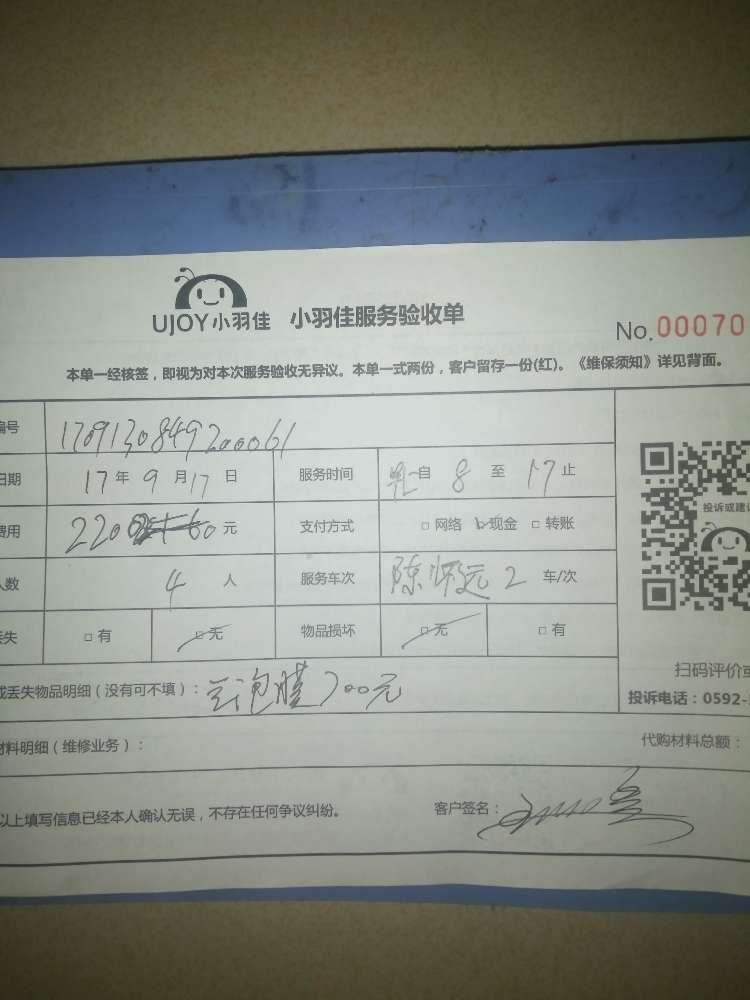 UJOY小羽佳 小羽佳服务验收单
No.00070
本单一经核签，即视为对本次服务验收无异议。本单一式两份，客户留存一份(红)。《维保须知》详见背面。
编号 1709130849200061
日期 17年9月17日 服务时间 自8至17止
费用 220 元 支付方式 □网络 □现金 □转账
人数 4人 服务车次 陈师远 2 车/次
丢失 □有 □无 物品损坏 □无 □有
或丢失物品明细（没有可不填）：气泡膜200元
材料明细（维修业务）： 代购材料总额：
以上填写信息已经本人确认无误，不存在任何争议纠纷。 客户签名：
投诉或建议
扫码评价或
投诉电话：0592-